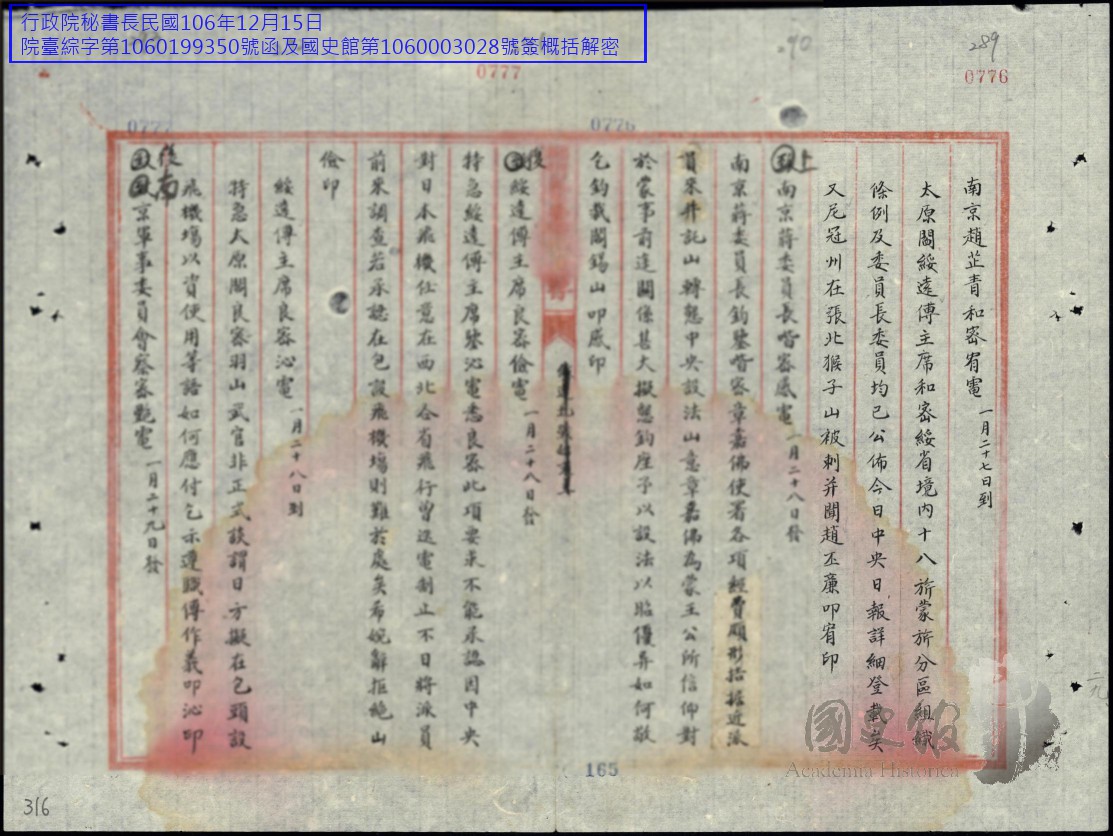 行政院秘書長民國106年12月15日
院臺綜字第1060199350號函及國史館第1060003028號簽概括解密
289
0776
0777
0776
0777
南京趙芷青和密宥電 一月二十七日到
太原閻綏遠傅主席和密綏省境內十八旂蒙旂分區組織
條例及委員長委員均已公佈今日中央日報詳細登載矣
又尼冠州在張北猴子山被刺并聞趙丕廉叩宥印
上 致南京蔣委員長喈密感電 一月二十八日發
南京蔣委員長鈞鑒喈密章嘉佛使署各項經費頗形拮据近派
員來并託山轉懇中央設法山意章嘉佛為蒙王公所信仰對
於蒙事前途關係甚大擬懇鈞座予以設法以臨優異如何敬
乞鈞裁閻錫山叩感印
復 綏遠傅主席良密儉電 一月二十八日發
特急綏遠傅主席鑒沁電悉良密此項要求不能承認因中央
對日本飛機任意在西北各省飛行曾迭電制止不日將派員
前來調查若承認在包設飛機場則難於處矣希婉辭拒絕山
儉印
綏遠傅主席良密沁電 一月二十八日到
特急太原閻良密羽山武官非正式談謂日方擬在包頭設
飛機場以資使用等語如何應付乞示遵職傅作義叩沁印
復 南京軍事委員會蔡密艷電 一月二十九日發
165
316
國史館
Academia Historica